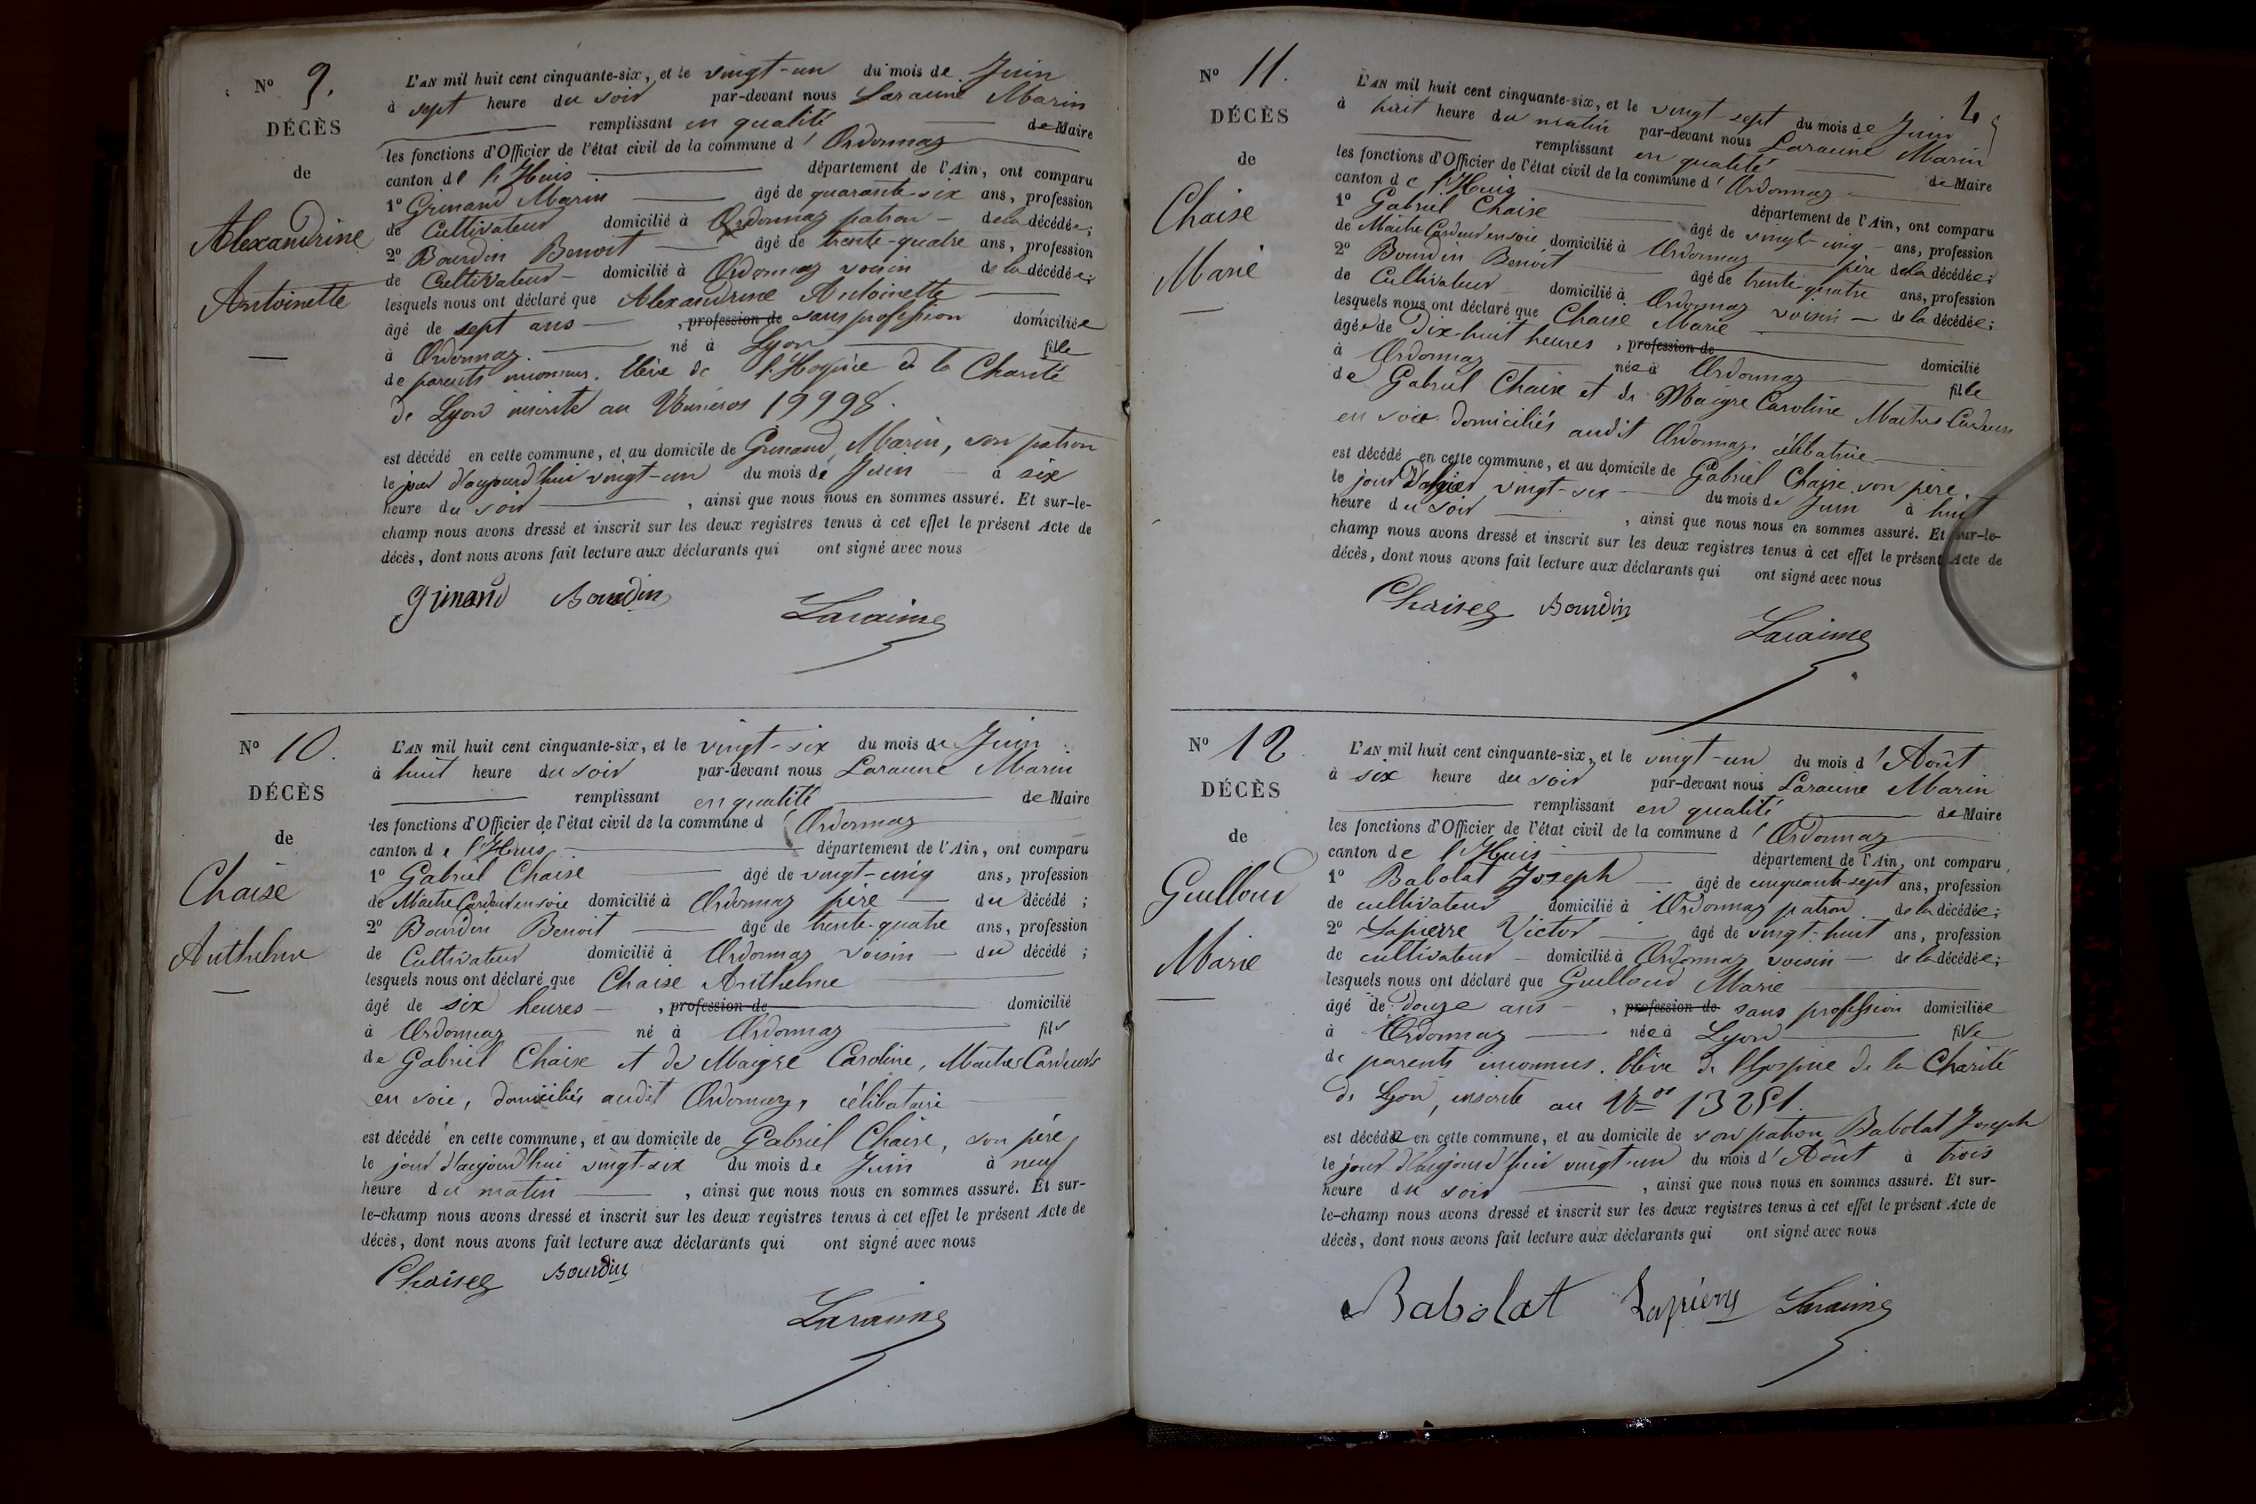 N° 9.
DÉCÈS
de
Alexandrine
Antoinette
L'AN mil huit cent cinquante-six, et le vingt-un du mois de Juin
à sept heure du soir par-devant nous Laraime Marin
remplissant en qualité de Maire
les fonctions d'Officier de l'état civil de la commune d'Ordonnaz
canton de l'Huis département de l'Ain, ont comparu
1° Grimand Marin âgé de quarante-six ans, profession
de Cultivateur domicilié à Ordonnaz patron de la décédée;
2° Bourdin Benoit âgé de trente-quatre ans, profession
de Cultivateur domicilié à Ordonnaz voisin de la décédée;
lesquels nous ont déclaré que Alexandrine Antoinette
âgé de sept ans, profession de sans profession domiciliée
à Ordonnaz. né à Lyon fille
de parents inconnus. Elève de l'Hospice de la Charité
de Lyon inscrite au Numéros 19998.
est décédé en cette commune, et au domicile de Grimand Marin, son patron
le jour d'aujourd'hui vingt-un du mois de Juin à six
heure du soir, ainsi que nous nous en sommes assuré. Et sur-le-
champ nous avons dressé et inscrit sur les deux registres tenus à cet effet le présent Acte de
décès, dont nous avons fait lecture aux déclarants qui ont signé avec nous
Grimand Bourdin
Laraime
N° 10.
DÉCÈS
de
Chaise
Anthelme
L'AN mil huit cent cinquante-six, et le vingt-six du mois de Juin
à huit heure du soir par-devant nous Laraime Marin
remplissant en qualité de Maire
les fonctions d'Officier de l'état civil de la commune d'Ordonnaz
canton de l'Huis département de l'Ain, ont comparu
1° Gabriel Chaise âgé de vingt-cinq ans, profession
de Maitre Cardeur en soie domicilié à Ordonnaz père du décédé;
2° Bourdin Benoit âgé de trente-quatre ans, profession
de Cultivateur domicilié à Ordonnaz voisin du décédé;
lesquels nous ont déclaré que Chaise Anthelme
âgé de six heures, profession de domicilié
à Ordonnaz né à Ordonnaz fils
de Gabriel Chaise et de Maigre Caroline, Maitres Cardeurs
en soie, domiciliés audit Ordonnaz, célibataire
est décédé en cette commune, et au domicile de Gabriel Chaise, son père,
le jour d'aujourd'hui vingt-six du mois de Juin à neuf
heure du matin, ainsi que nous nous en sommes assuré. Et sur-
le-champ nous avons dressé et inscrit sur les deux registres tenus à cet effet le présent Acte de
décès, dont nous avons fait lecture aux déclarants qui ont signé avec nous
Chaise Bourdin
Laraime
N° 11.
DÉCÈS
de
Chaise
Marie
L'AN mil huit cent cinquante-six, et le vingt-sept du mois de Juin
à huit heure du matin par-devant nous Laraime Marin
remplissant en qualité de Maire
les fonctions d'Officier de l'état civil de la commune d'Ordonnaz
canton de l'Huis département de l'Ain, ont comparu
1° Gabriel Chaise âgé de vingt-cinq ans, profession
de Maitre Cardeur en soie domicilié à Ordonnaz père de la décédée;
2° Bourdin Benoit âgé de trente-quatre ans, profession
de Cultivateur domicilié à Ordonnaz voisin de la décédée;
lesquels nous ont déclaré que Chaise Marie
âgée de Dix-huit heures, profession de domicilié
à Ordonnaz née à Ordonnaz fille
de Gabriel Chaise et de Maigre Caroline Maitres Cardeurs
en soie domiciliés audit Ordonnaz, célibatrice
est décédé en cette commune, et au domicile de Gabriel Chaise son père,
le jour D'hier vingt-six du mois de Juin à huit
heure du soir, ainsi que nous nous en sommes assuré. Et sur-le-
champ nous avons dressé et inscrit sur les deux registres tenus à cet effet le présent Acte de
décès, dont nous avons fait lecture aux déclarants qui ont signé avec nous
Chaise Bourdin
Laraime
N° 12
DÉCÈS
de
Guilloud
Marie
L'AN mil huit cent cinquante-six, et le vingt-un du mois d'Août
à six heure du soir par-devant nous Laraime Marin
remplissant en qualité de Maire
les fonctions d'Officier de l'état civil de la commune d'Ordonnaz
canton de l'Huis département de l'Ain, ont comparu
1° Babolat Joseph âgé de cinquante-sept ans, profession
de cultivateur domicilié à Ordonnaz patron de la décédée;
2° Lapierre Victor âgé de vingt-huit ans, profession
de cultivateur domicilié à Ordonnaz voisin de la décédée;
lesquels nous ont déclaré que Guilloud Marie
âgé de Douze ans, profession de sans profession domiciliée
à Ordonnaz née à Lyon fille
de parents inconnus. Elève de l'Hospice de la Charité
de Lyon, inscrite au
est décédée en cette commune, et au domicile de son patron Babolat Joseph
le jour d'aujourd'hui vingt-un du mois d'Août à trois
heure du soir, ainsi que nous nous en sommes assuré. Et sur-
le-champ nous avons dressé et inscrit sur les deux registres tenus à cet effet le présent Acte de
décès, dont nous avons fait lecture aux déclarants qui ont signé avec nous
Babolat Lapierre Laraime